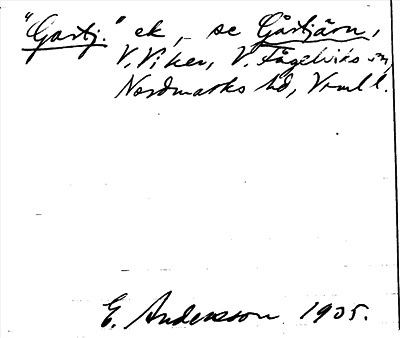 "Gastj." ek, se Gåstjärn,
V. Viker, V. Fågelviks sn,
Nordmarks hd, Vrml l.
E. Andersson 1905.